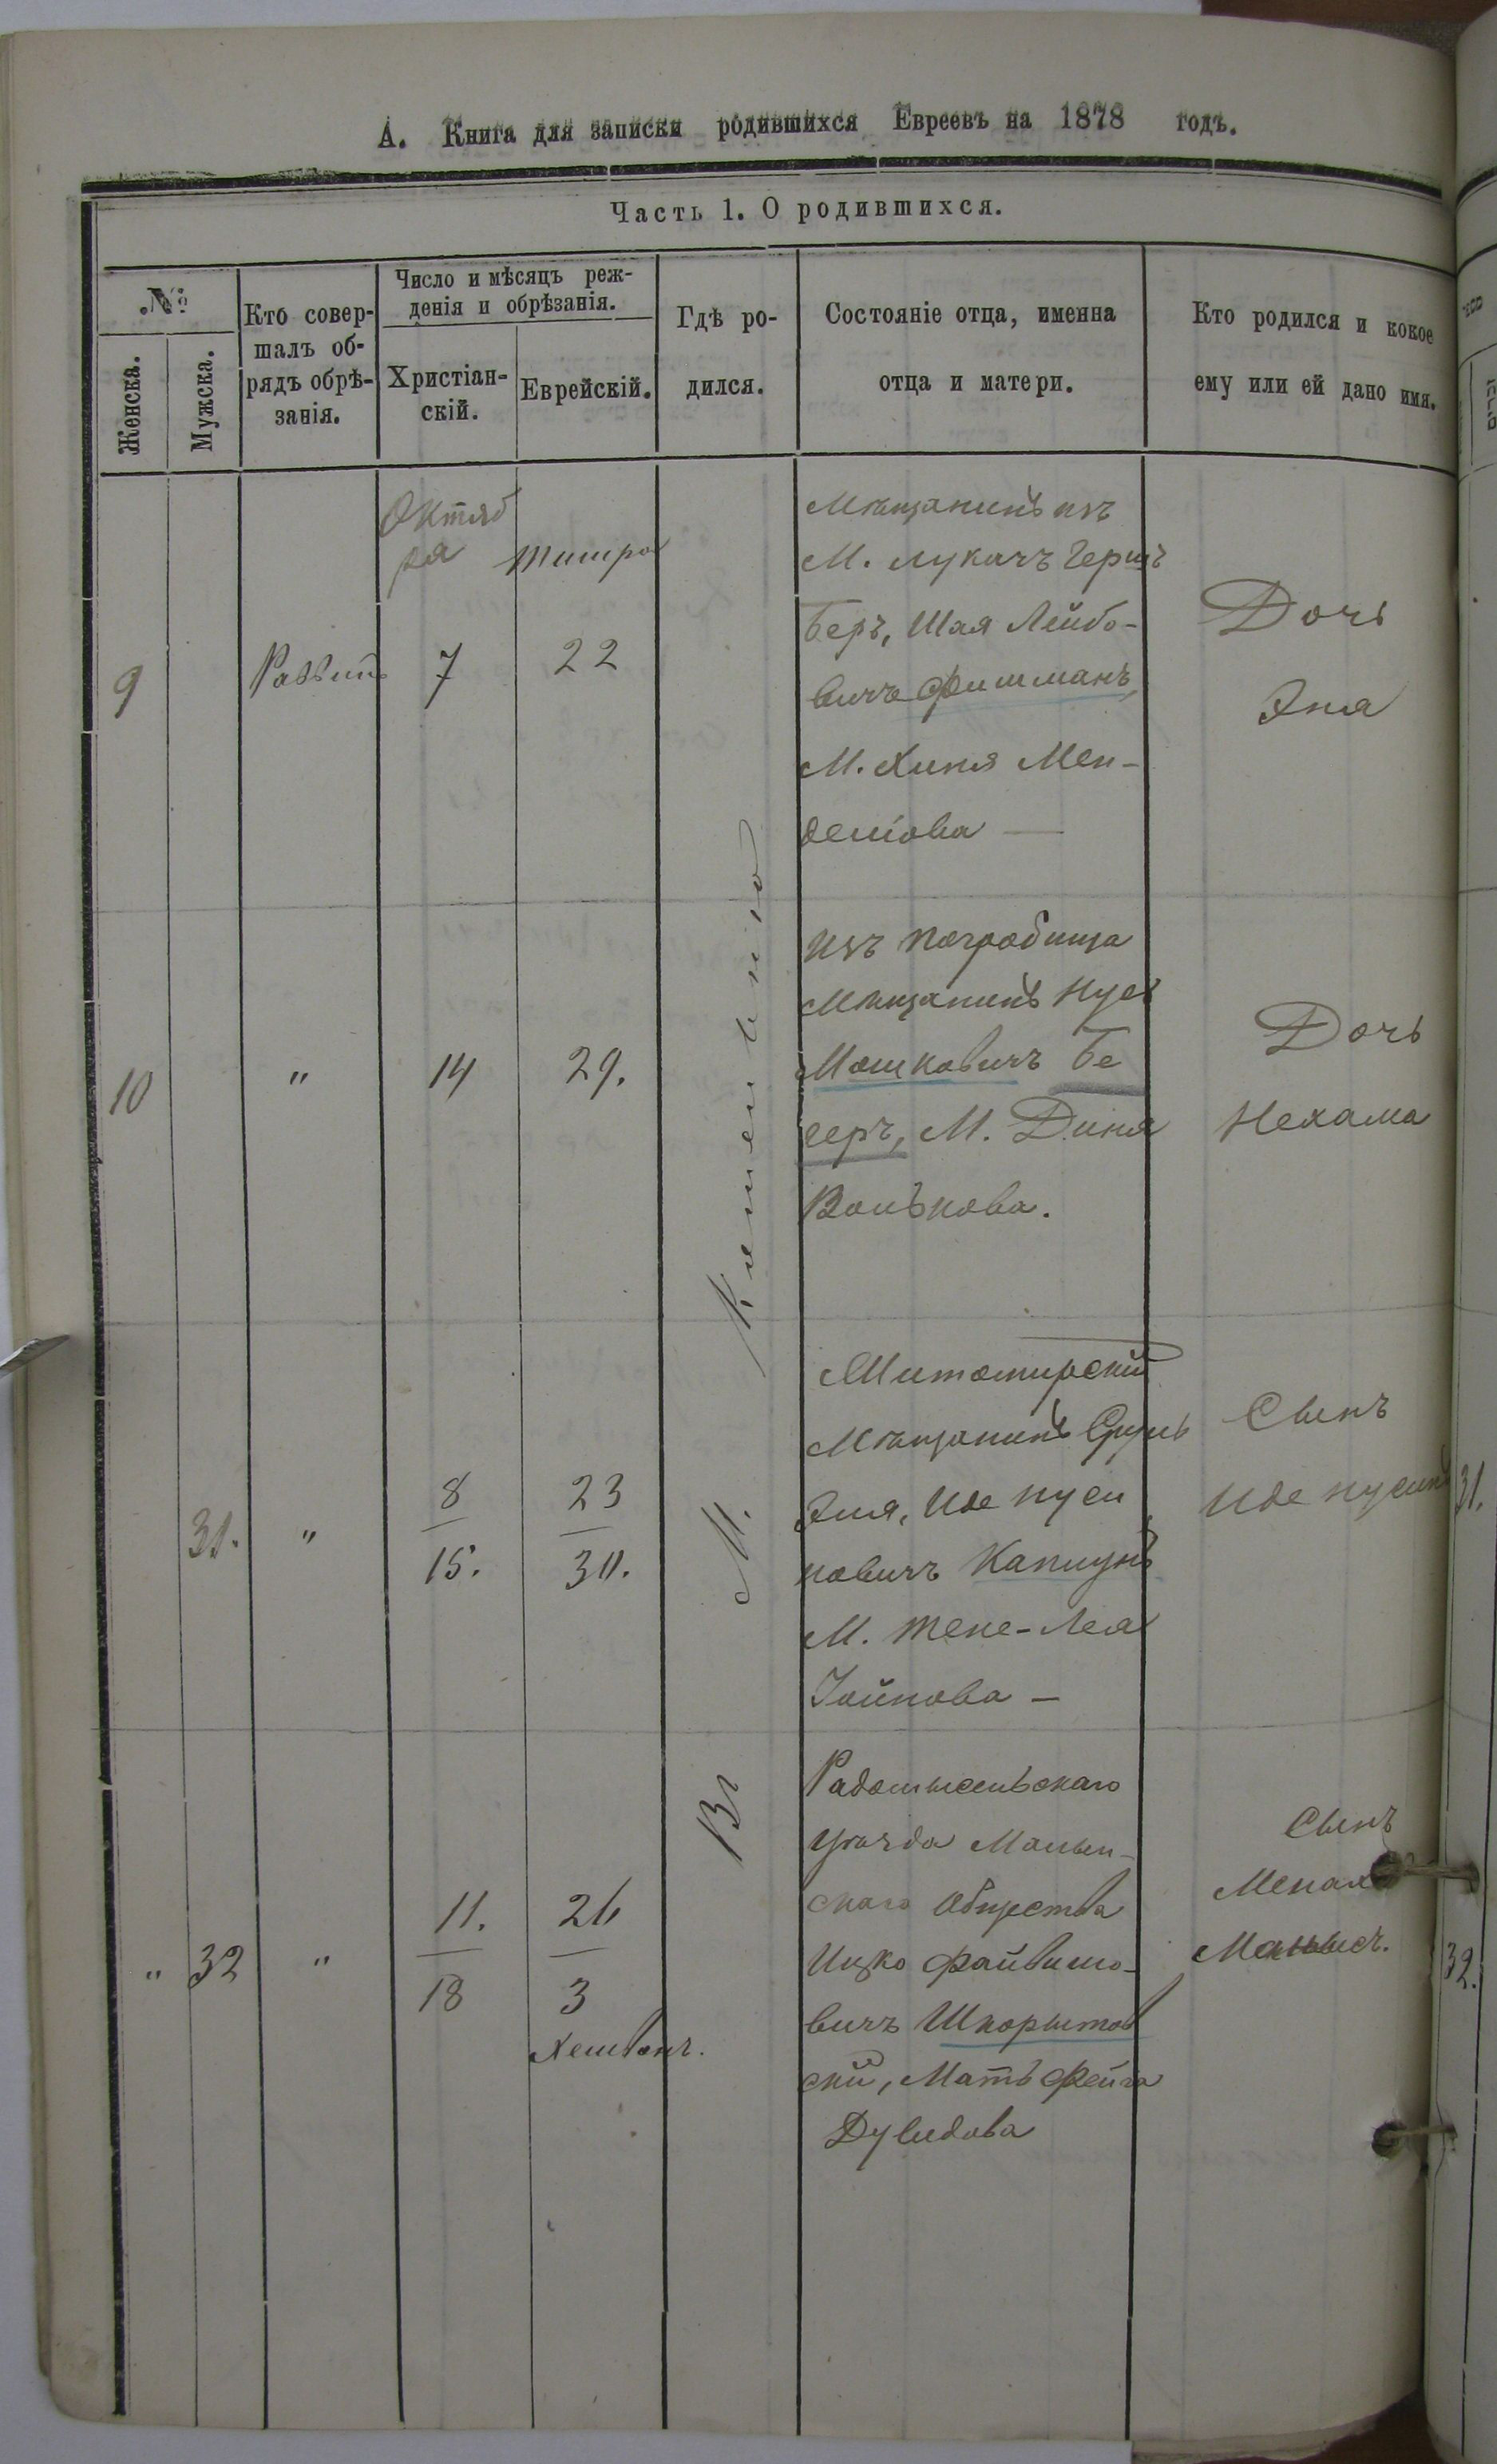 А. Книга для записки родившихся Евреевъ на 1878 годъ.
Часть 1. О родившихся.
№
Женска.
Мужска.
Кто совер-
шалъ об-
рядъ обрѣ-
занія.
Число и мѣсяцъ реж-
денія и обрѣзанія.
Христіан-
скій.
Еврейскій.
Гдѣ ро-
дился.
Состояніе отца, именна
отца и матери.
Кто родился и кокое
ему или ей дано имя.
Октяб
ря
Тишра
9
Раввинъ
7
22
Мѣщанинъ изъ
М. Лукачъ Герш
Беръ, Шая Лейбо-
вичъ Фишманъ,
М. Хиня Мен-
делiова —
Дочь
Эля
10
"
14
29.
Изъ Погребища
Мѣщанинъ Нусъ
Мошковичъ Бе
геръ, М. Диня
Волькова.
Дочь
Нехама
31.
"
8
15.
23
30.
Житомирскій
Мѣщанинъ Сруль
Эля, Иде Нуси
новичъ Каплунъ
М. Тене-Лея
Іойнова —
Сынъ
Иде Нусинъ
31.
"
32
"
11.
18
26
3
Хешванъ.
Радомысельскаго
уѣзда Малын-
скаго Общества
Ицко Файвишо-
вичъ Шкорытов
скій, Мать Фейга
Дувидова
Сынъ
Менахе
Манысъ.
32.
Въ М.